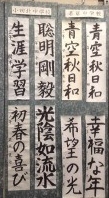 青空秋日和
青空秋日和
聡明剛毅
生涯学習
幸福な年
希望の光
光陰如流水
初春の喜び